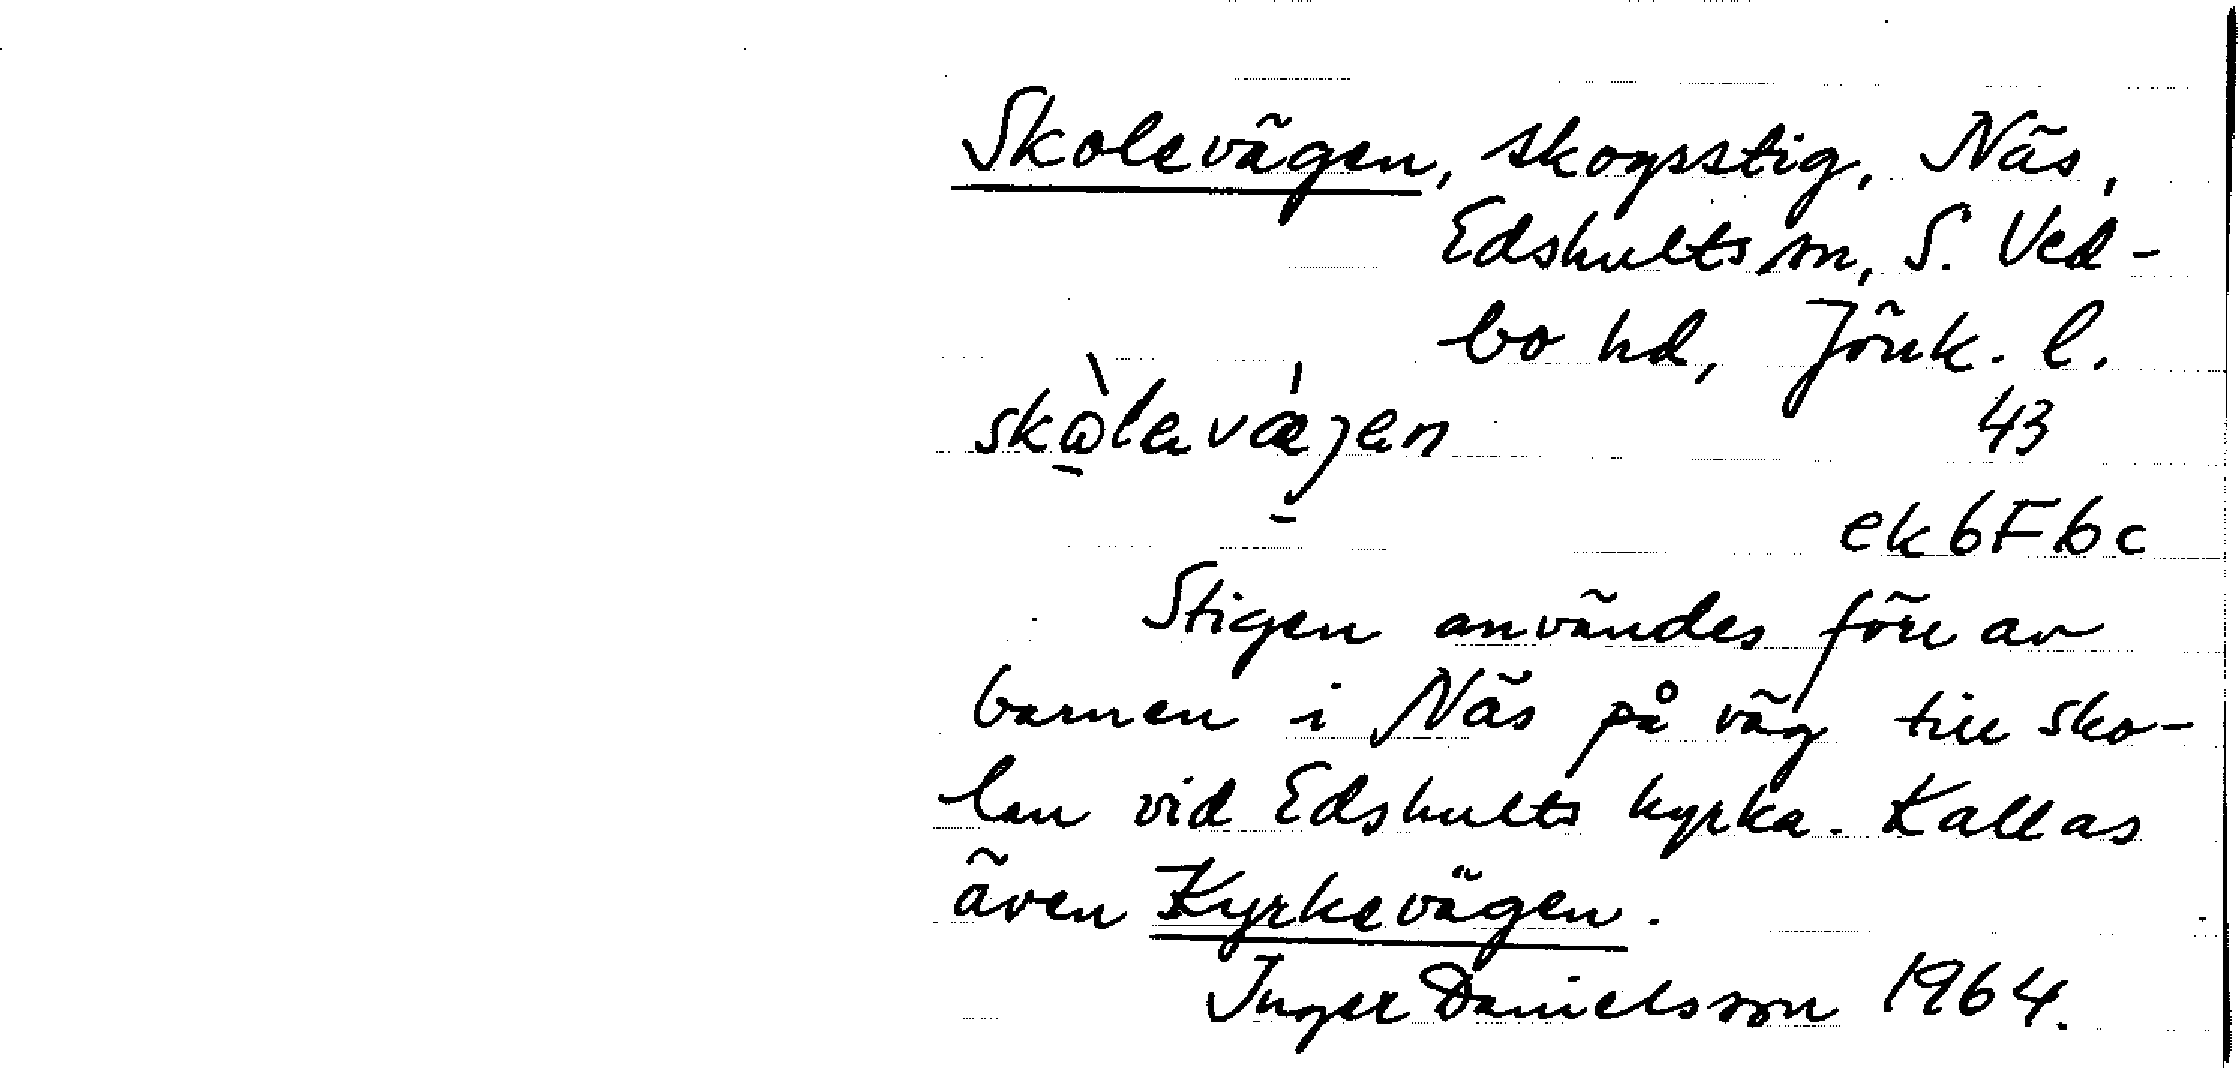 Skolevägen, skogsstig, Näs,
Edshults sn, S. Ved-
bo hd, Jönk. l.
skɷ̀levæ̀jen 43
ek6F6c
Stigen användes förr av
barnen i Näs på väg till sko-
lan vid Edshults kyrka. Kallas
även Kyrkevägen.
Inger Danielsson 1964.